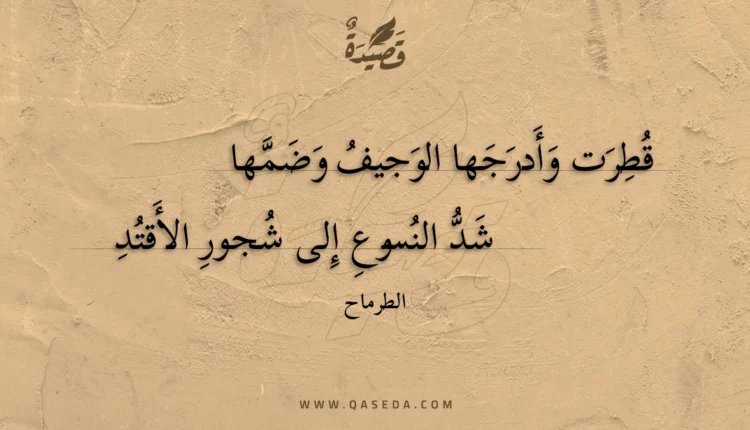 قَصِيْدَةٌ
قُطِرَت وَأَدرَجَها الوَجيفُ وَضَمَّها
شَدُّ النُسوعِ إِلى شُجورِ الأَقتُدِ
الطرماح
WWW.QASEDA.COM